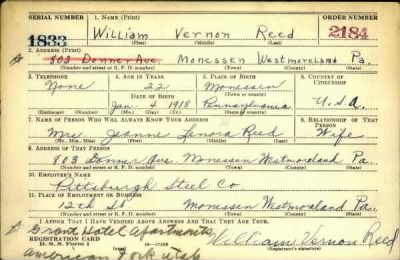 SERIAL NUMBER 1. NAME (Print) ORDER NUMBER
1833 William Vernon Reed 2184
(First) (Middle) (Last)
2. ADDRESS (Print)
803 Donner Ave. Monessen Westmoreland Pa.
(Number and street or R. F. D. number) (Town) (County) (State)
3. TELEPHONE 4. AGE IN YEARS 5. PLACE OF BIRTH 6. COUNTRY OF CITIZENSHIP
None 22 Monessen
DATE OF BIRTH (Town or county)
Jan. 4 1918 Pennsylvania U.S.A.
(Exchange) (Number) (Mo.) (Day) (Yr.) (State or country)
7. NAME OF PERSON WHO WILL ALWAYS KNOW YOUR ADDRESS 8. RELATIONSHIP OF THAT PERSON
Mrs. Jeanne Lenora Reed Wife
(Mr., Mrs., Miss) (First) (Middle) (Last)
9. ADDRESS OF THAT PERSON
803 Donner Ave. Monessen Westmoreland Pa.
(Number and street or R. F. D. number) (Town) (County) (State)
10. EMPLOYER'S NAME
Pittsburgh Steel Co
11. PLACE OF EMPLOYMENT OR BUSINESS
12th St. Monessen Westmoreland Pa.
(Number and street or R. F. D. number) (Town) (County) (State)
I AFFIRM THAT I HAVE VERIFIED ABOVE ANSWERS AND THAT THEY ARE TRUE.
Grant Hotel Apartments
REGISTRATION CARD
D. S. S. Form 1 William Vernon Reed
(Registrant's signature)
American Fork Utah